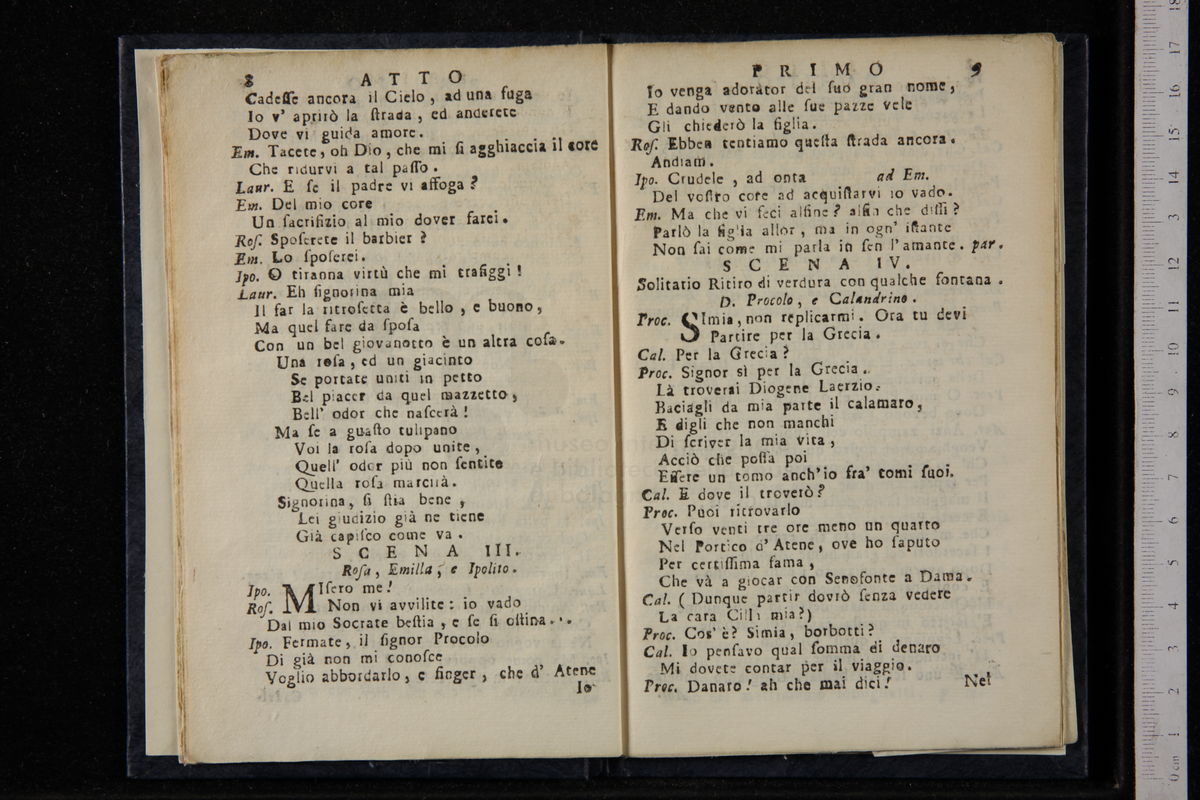 8 ATTO
Cadeſſe ancora il Cielo, ad una fuga
Io v' aprirò la ſtrada, ed anderete
Dove vi guida amore.
Em. Tacete, oh Dio, che mi ſi agghiaccia il core
Che ridurvi a tal paſſo.
Laur. E ſe il padre vi affoga?
Em. Del mio core
Un ſacrifizio al mio dover farei.
Roſ. Spoſerete il barbier?
Em. Lo ſpoſerei.
Ipo. O tiranna virtù che mi trafiggi!
Laur. Eh ſignorina mia
Il far la ritroſetta è bello, e buono,
Ma quel fare da ſpoſa
Con un bel giovanotto è un altra coſa.
Una roſa, ed un giacinto
Se portate uniti in petto
Bel piacer da quel mazzetto,
Bell' odor che naſcerà!
Ma ſe a guaſto tulipano
Voi la roſa dopo unite,
Quell' odor più non ſentite
Quella roſa marcirà.
Signorina, ſi ſtia bene,
Lei giudizio già ne tiene
Già capiſco come va.
SCENA III.
Roſa, Emilla, e Ipolito.
Ipo. MIſero me!
Roſ. Non vi avvilite: io vado
Dal mio Socrate beſtia, e ſe ſi oſtina...
Ipo. Fermate, il ſignor Procolo
Di già non mi conoſce
Voglio abbordarlo, e finger, che d' Atene
Io
PRIMO 9
Io venga adorator del ſuo gran nome,
E dando vento alle ſue pazze vele
Gli chiederò la figlia.
Roſ. Ebben tentiamo queſta ſtrada ancora.
Andiam.
Ipo. Crudele, ad onta ad Em.
Del voſtro core ad acquiſtarvi io vado.
Em. Ma che vi feci alfine? alfin che diſſi?
Parlò la figlia allor, ma in ogn' iſtante
Non ſai come mi parla in ſen l'amante. par.
SCENA IV.
Solitario Ritiro di verdura con qualche fontana.
D. Procolo, e Calandrino.
Proc. SImia, non replicarmi. Ora tu devi
Partire per la Grecia.
Cal. Per la Grecia?
Proc. Signor sì per la Grecia.
Là troverai Diogene Laerzio.
Baciagli da mia parte il calamaro,
E digli che non manchi
Di ſcriver la mia vita,
Acciò che poſſa poi
Eſſere un tomo anch'io fra' tomi ſuoi.
Cal. E dove il troverò?
Proc. Puoi ritrovarlo
Verſo venti tre ore meno un quarto
Nel Portico d' Atene, ove ho ſaputo
Per certiſſima fama,
Che và a giocar con Senofonte a Dama.
Cal. (Dunque partir dovrò ſenza vedere
La cara Cilli mia?)
Proc. Cos' è? Simia, borbotti?
Cal. Io penſavo qual ſomma di denaro
Mi dovete contar per il viaggio.
Proc. Danaro! ah che mai dici!
Nel